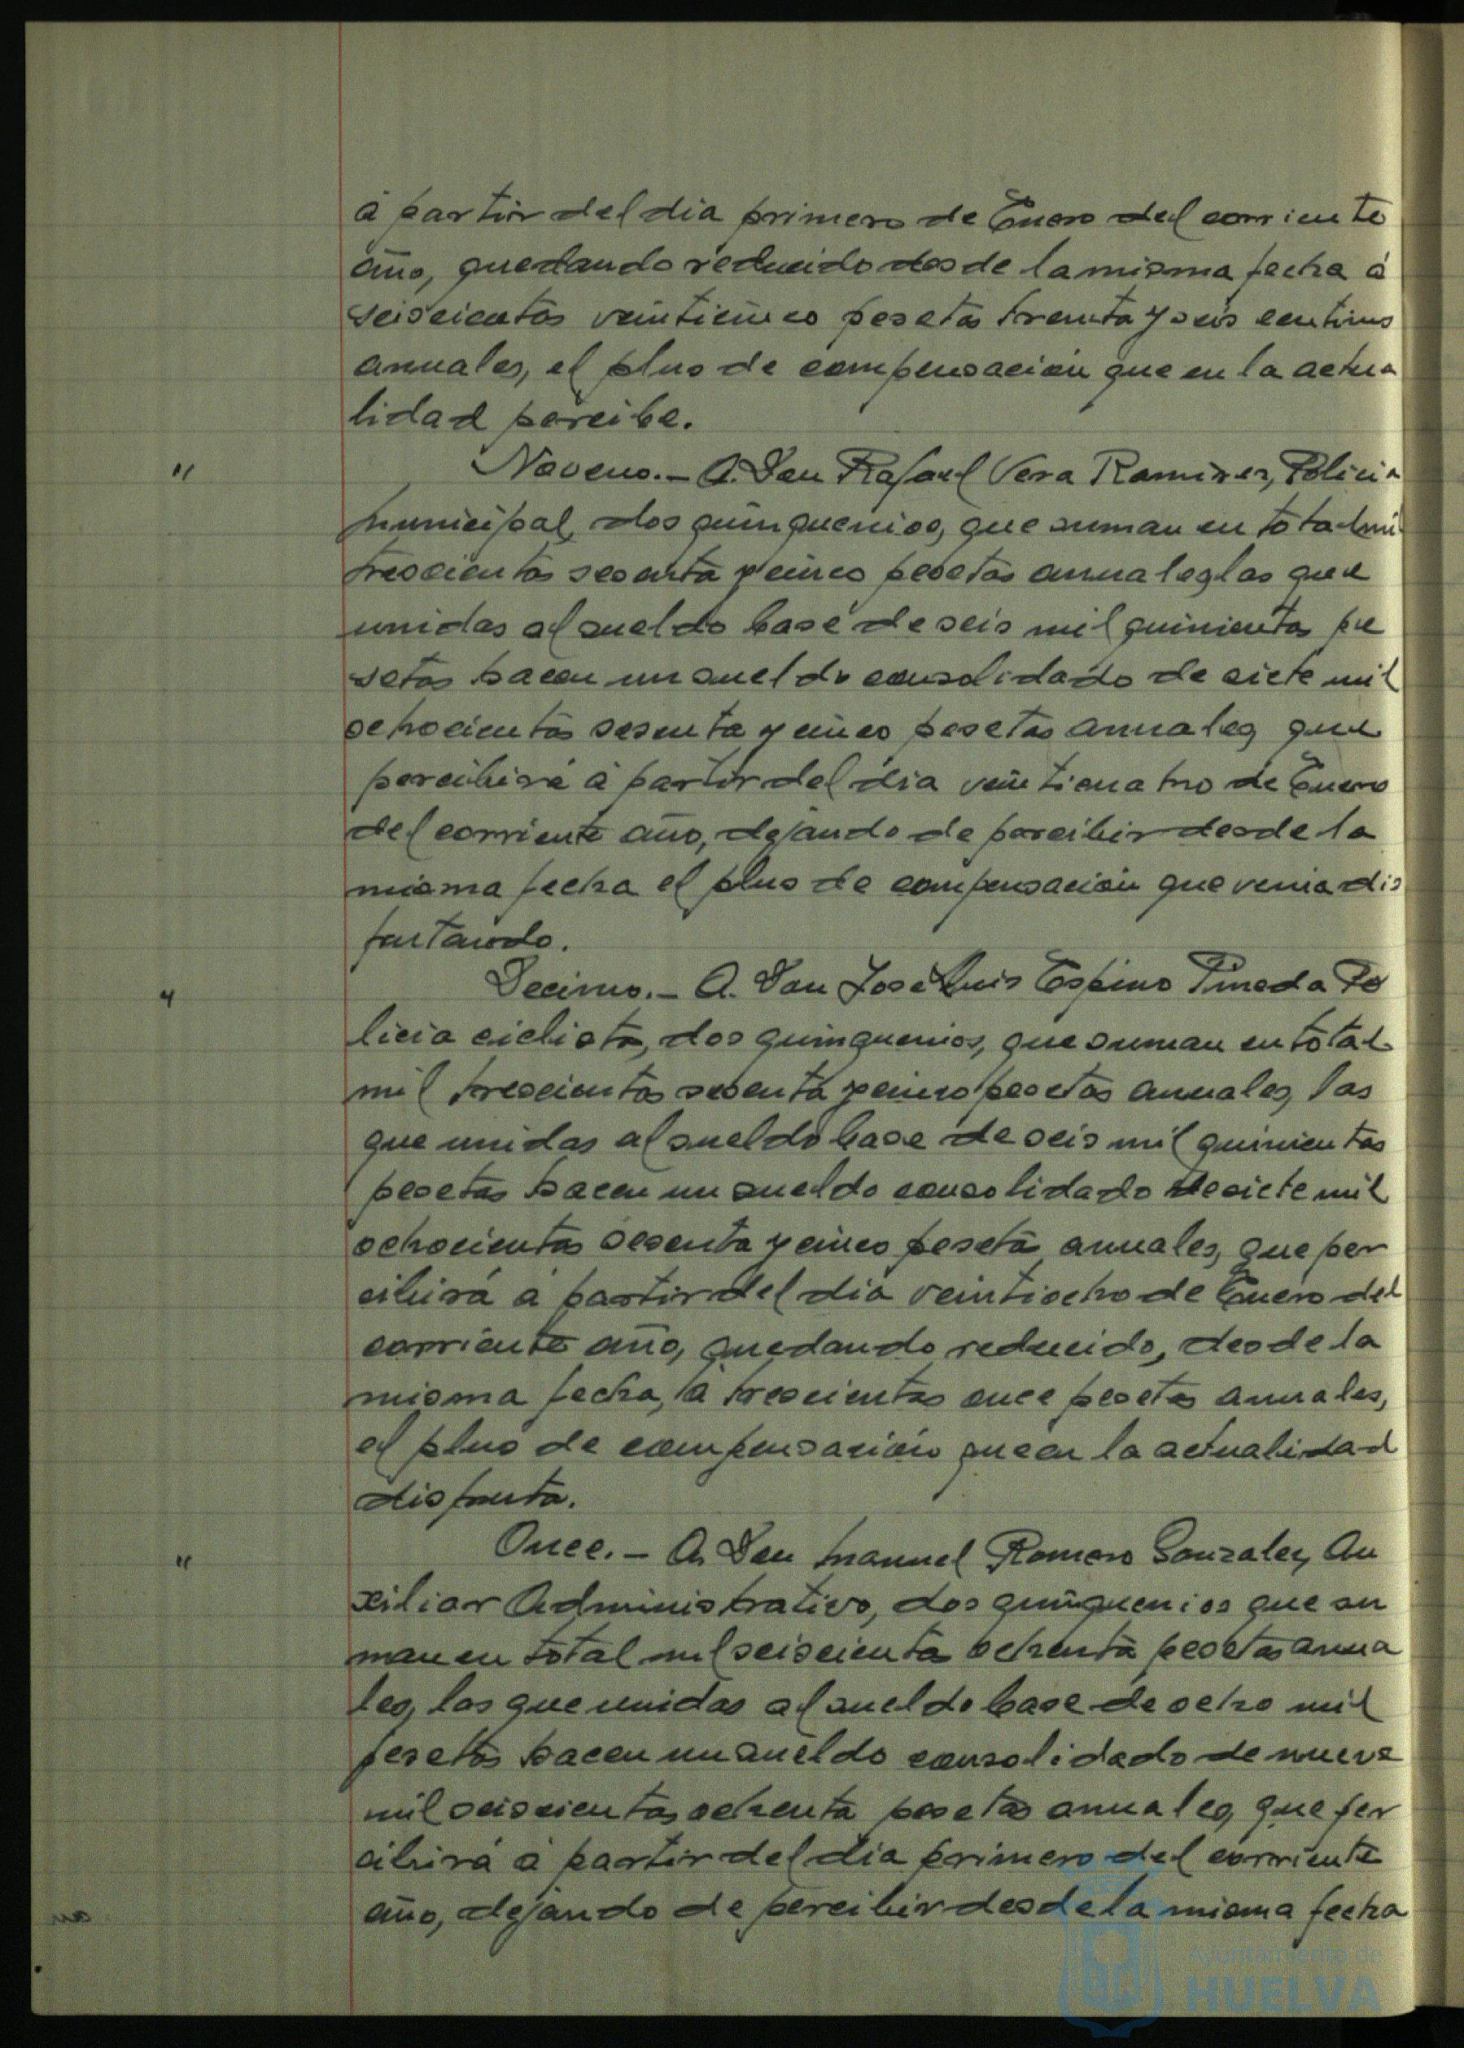 á partir del dia primero de Enero del corriente
año, quedando reducido desde la misma fecha á
seiscientas veinticinco pesetas treinta y seis centimos
anuales, el plus de compensación que en la actua
lidad percibe.
" Noveno.- A. Don Rafael Vera Ramirez, Policia
municipal, dos quinquenios, que suman en total mil
trescientas sesenta y cinco pesetas anuales, las que
unidas al sueldo base de seis mil quinientas pe
setas hacen un sueldo consolidado de siete mil
ochocientas sesenta y cinco pesetas anuales, que
percibirá á partir del dia veinticuatro de Enero
del corriente año, dejando de percibir desde la
misma fecha el plus de compensación que venia dis
frutando.
" Decimo.- A. Don José Luis Espino Pineda Po
licia ciclista, dos quinquenios, que suman en total
mil trescientas sesenta y cinco pesetas anuales, las
que unidas al sueldo base de seis mil quinientas
pesetas hacen un sueldo consolidado de siete mil
ochocientas sesenta y cinco pesetas anuales, que per
cibirá á partir del dia veintiocho de Enero del
corriente año, quedando reducido, desde la
misma fecha, á trescientas once pesetas anuales,
el plus de compensación que en la actualidad
disfruta.
" Once.- A. Don Manuel Romero Gonzalez, Au
xiliar Administrativo, dos quinquenios que su
man en total mil seiscientas ochenta pesetas anua
les, las que unidas al sueldo base de ocho mil
pesetas hacen un sueldo consolidado de nueve
mil seiscientas ochenta pesetas anuales, que per
cibirá á partir del dia primero del corriente
año, dejando de percibir desde la misma fecha
Ayuntamiento de
HUELVA